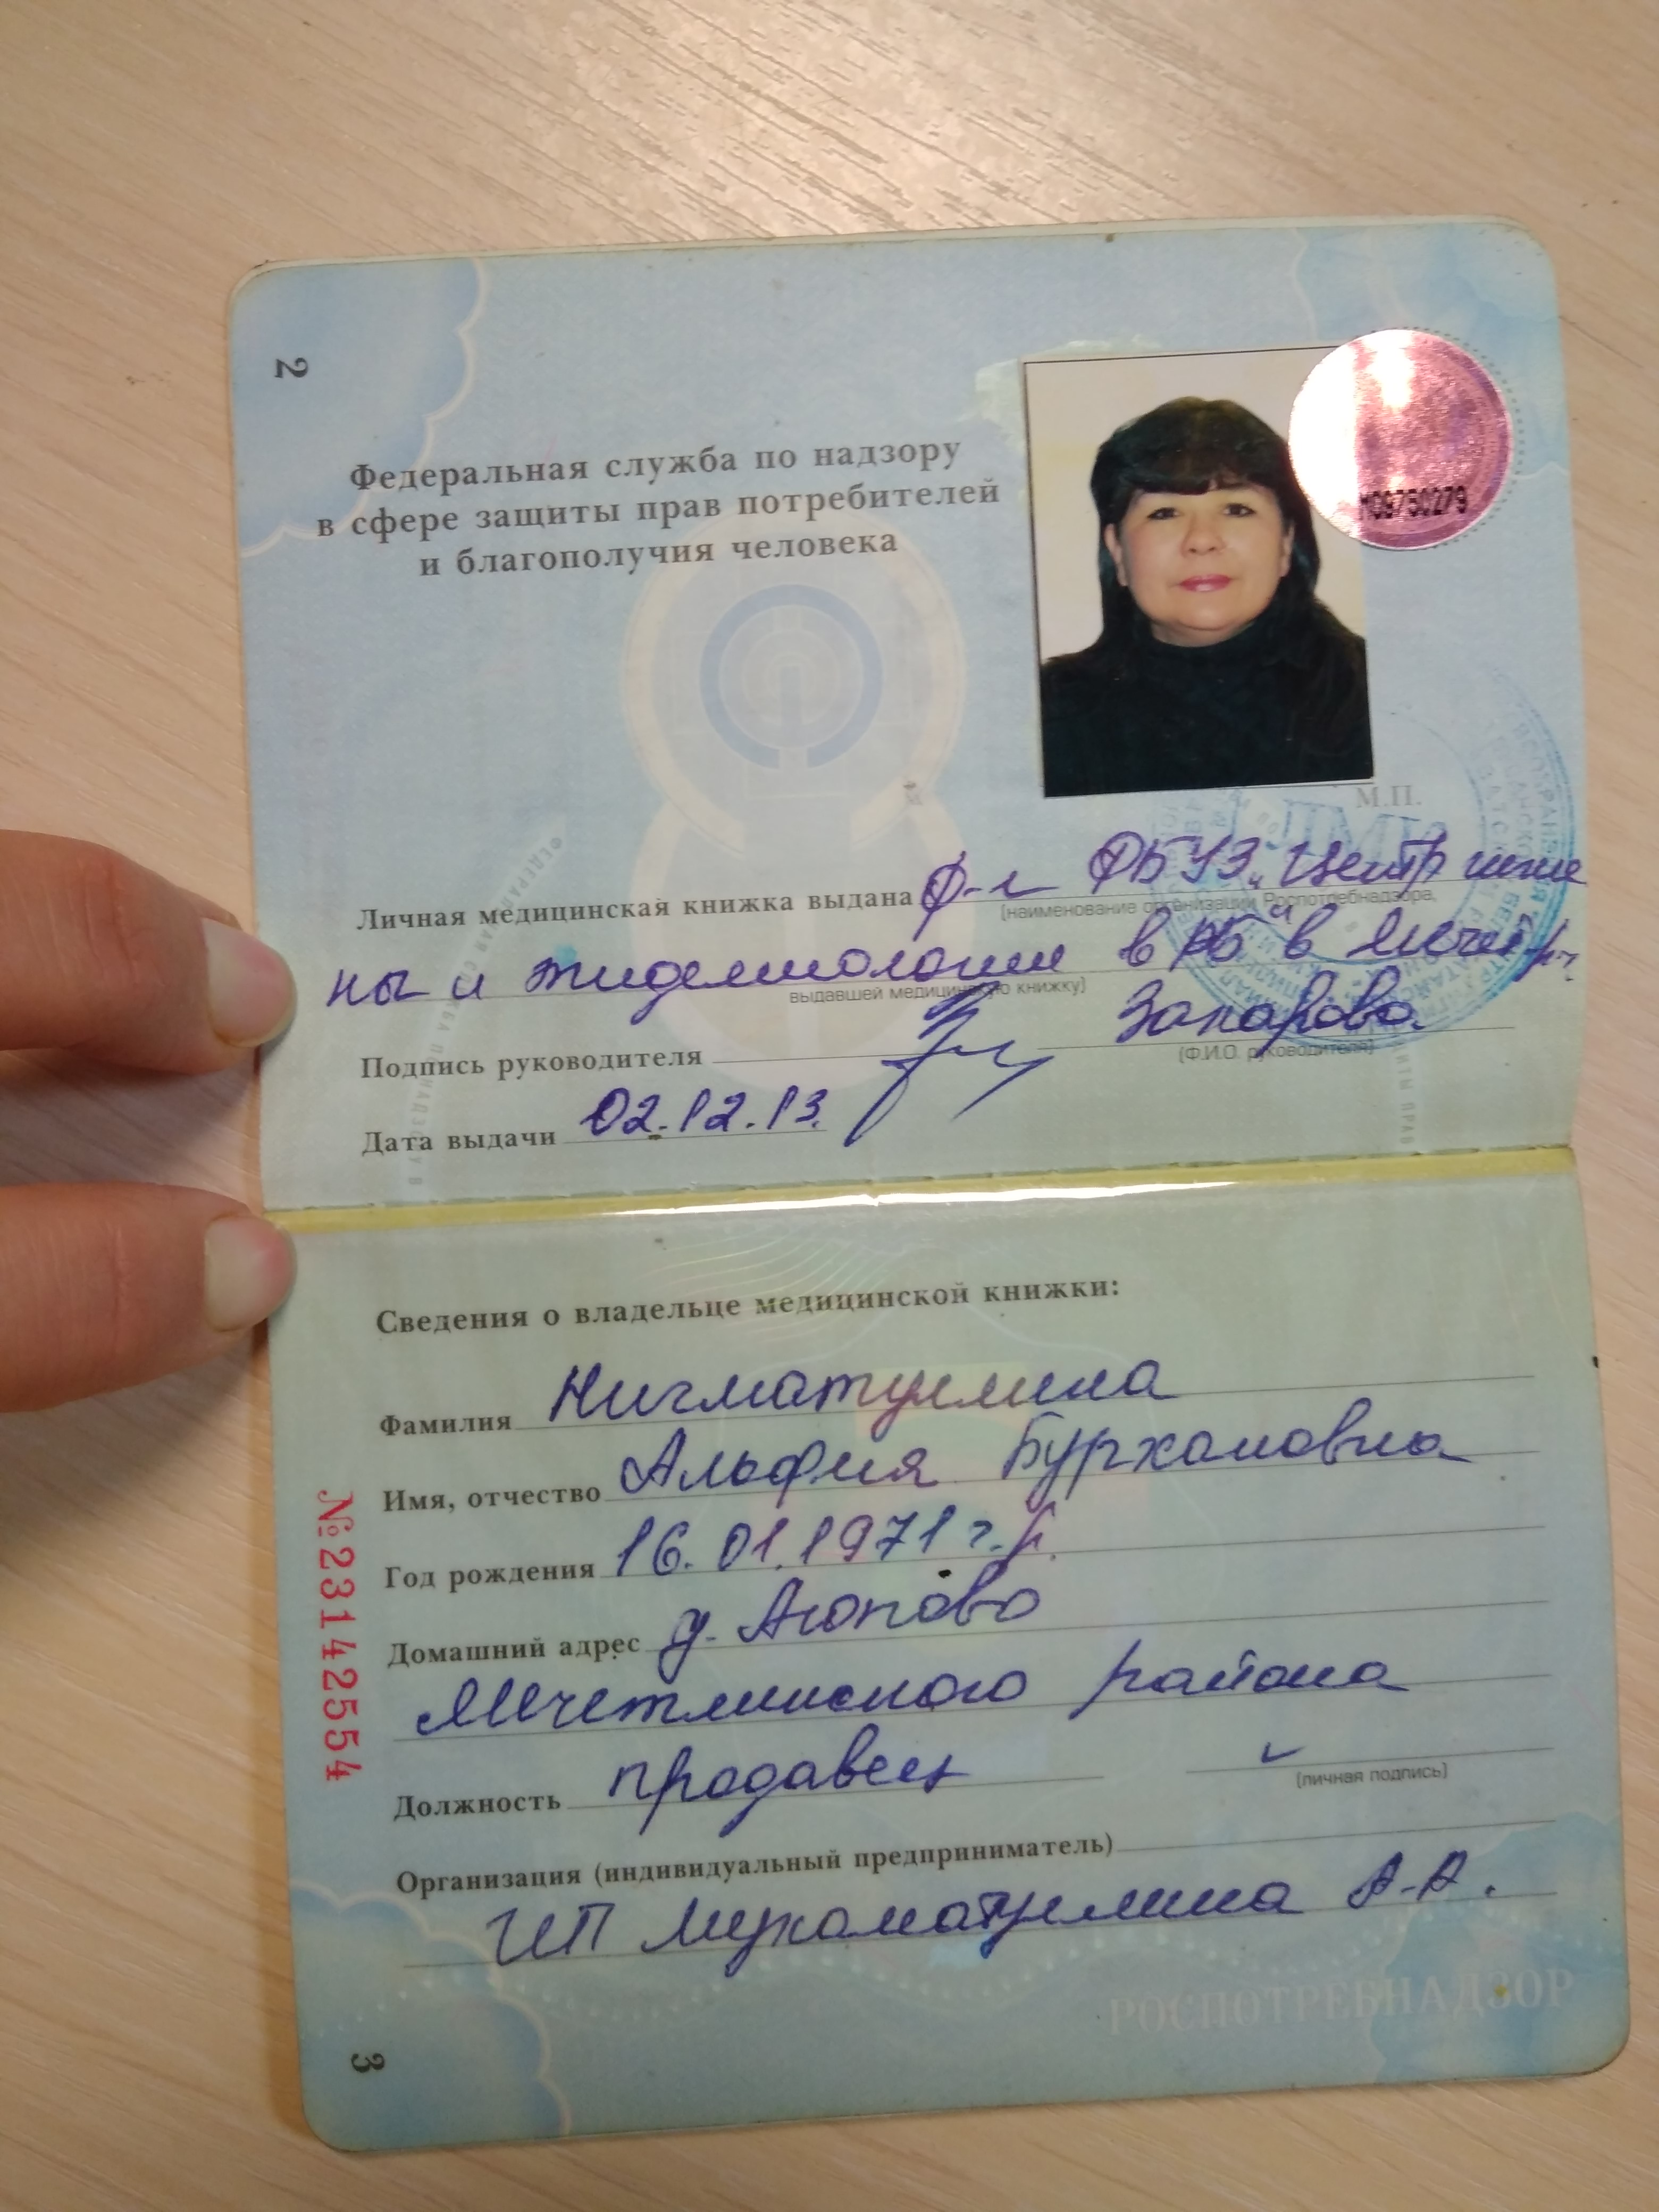 2
Федеральная служба по надзору
в сфере защиты прав потребителей
и благополучия человека
М09750279
М.П.
Личная медицинская книжка выдана Ф-л ФБУЗ "Центр гигие
(наименование организации Роспотребнадзора,
ны и эпидемиологии в РБ" в
выдавшей медицинскую книжку)
Подпись руководителя Запарова
(Ф.И.О. руководителя)
Дата выдачи 02.12.13.
Сведения о владельце медицинской книжки:
Фамилия Нигматуллина
Имя, отчество Альфия Бурхановна
Год рождения 16.01.1971 г.р.
Домашний адрес д. Аюпово
Мечетлинского района
Должность продавец
(личная подпись)
Организация (индивидуальный предприниматель)
ИП Мухаматуллина А.А.
№ 23142554
РОСПОТРЕБНАДЗОР
3